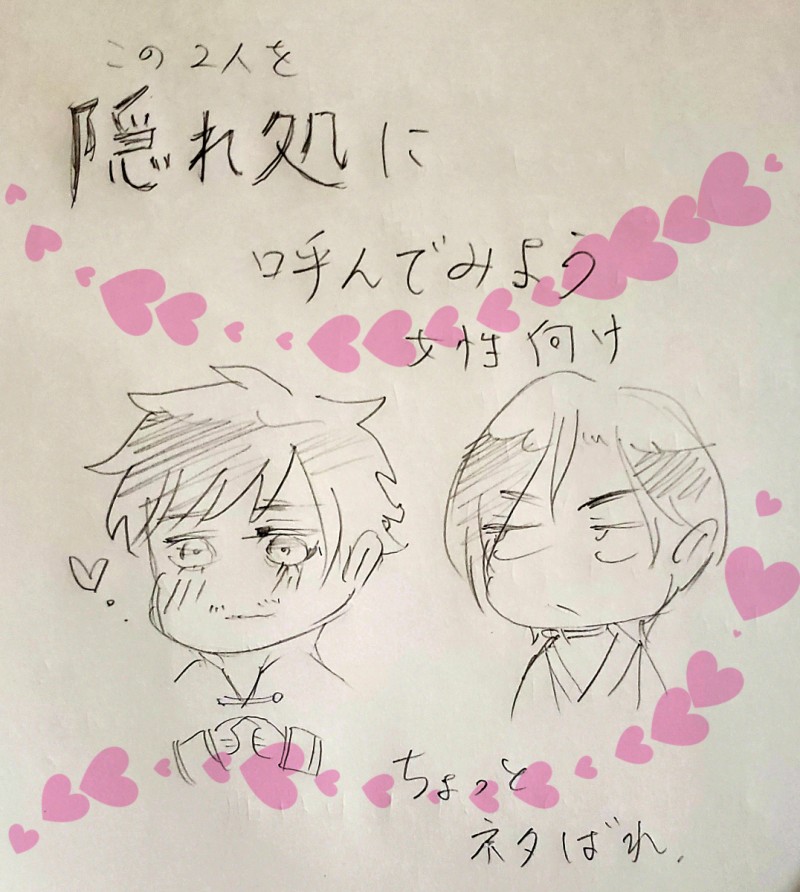 この2人を
隠れ処に
呼んでみよう
女性向け
ちょっと
ネタばれ.